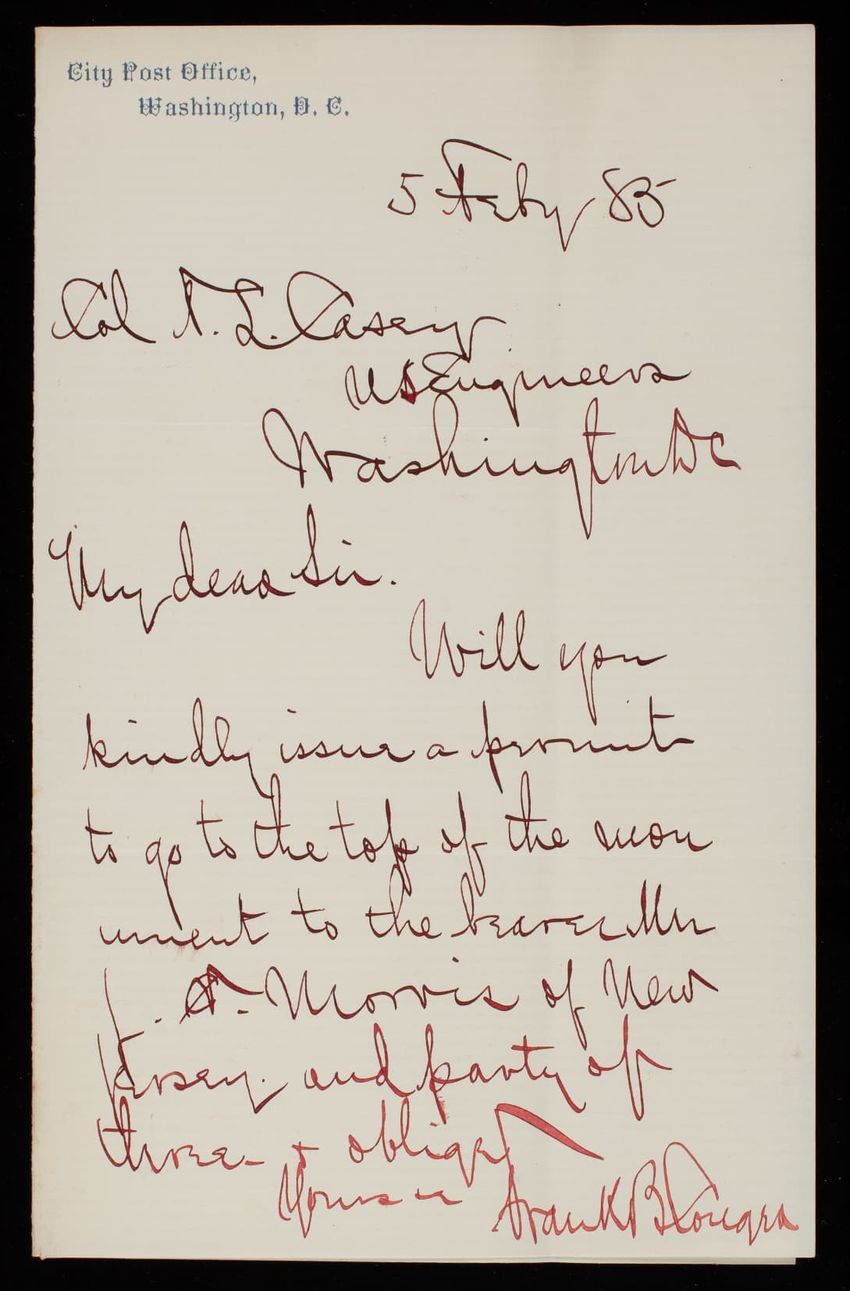 City Post Office,
Washington, D. C.
5 Feby 85
Col T. L. Casey
US Engineers
Washington DC
My dear Sir.
Will you
kindly issue a permit
to go to the top of the mon
ument to the bearer Mr
J. A. Morris of New
Jersey. and party of
three - & oblige
Yours
Frank B Conger